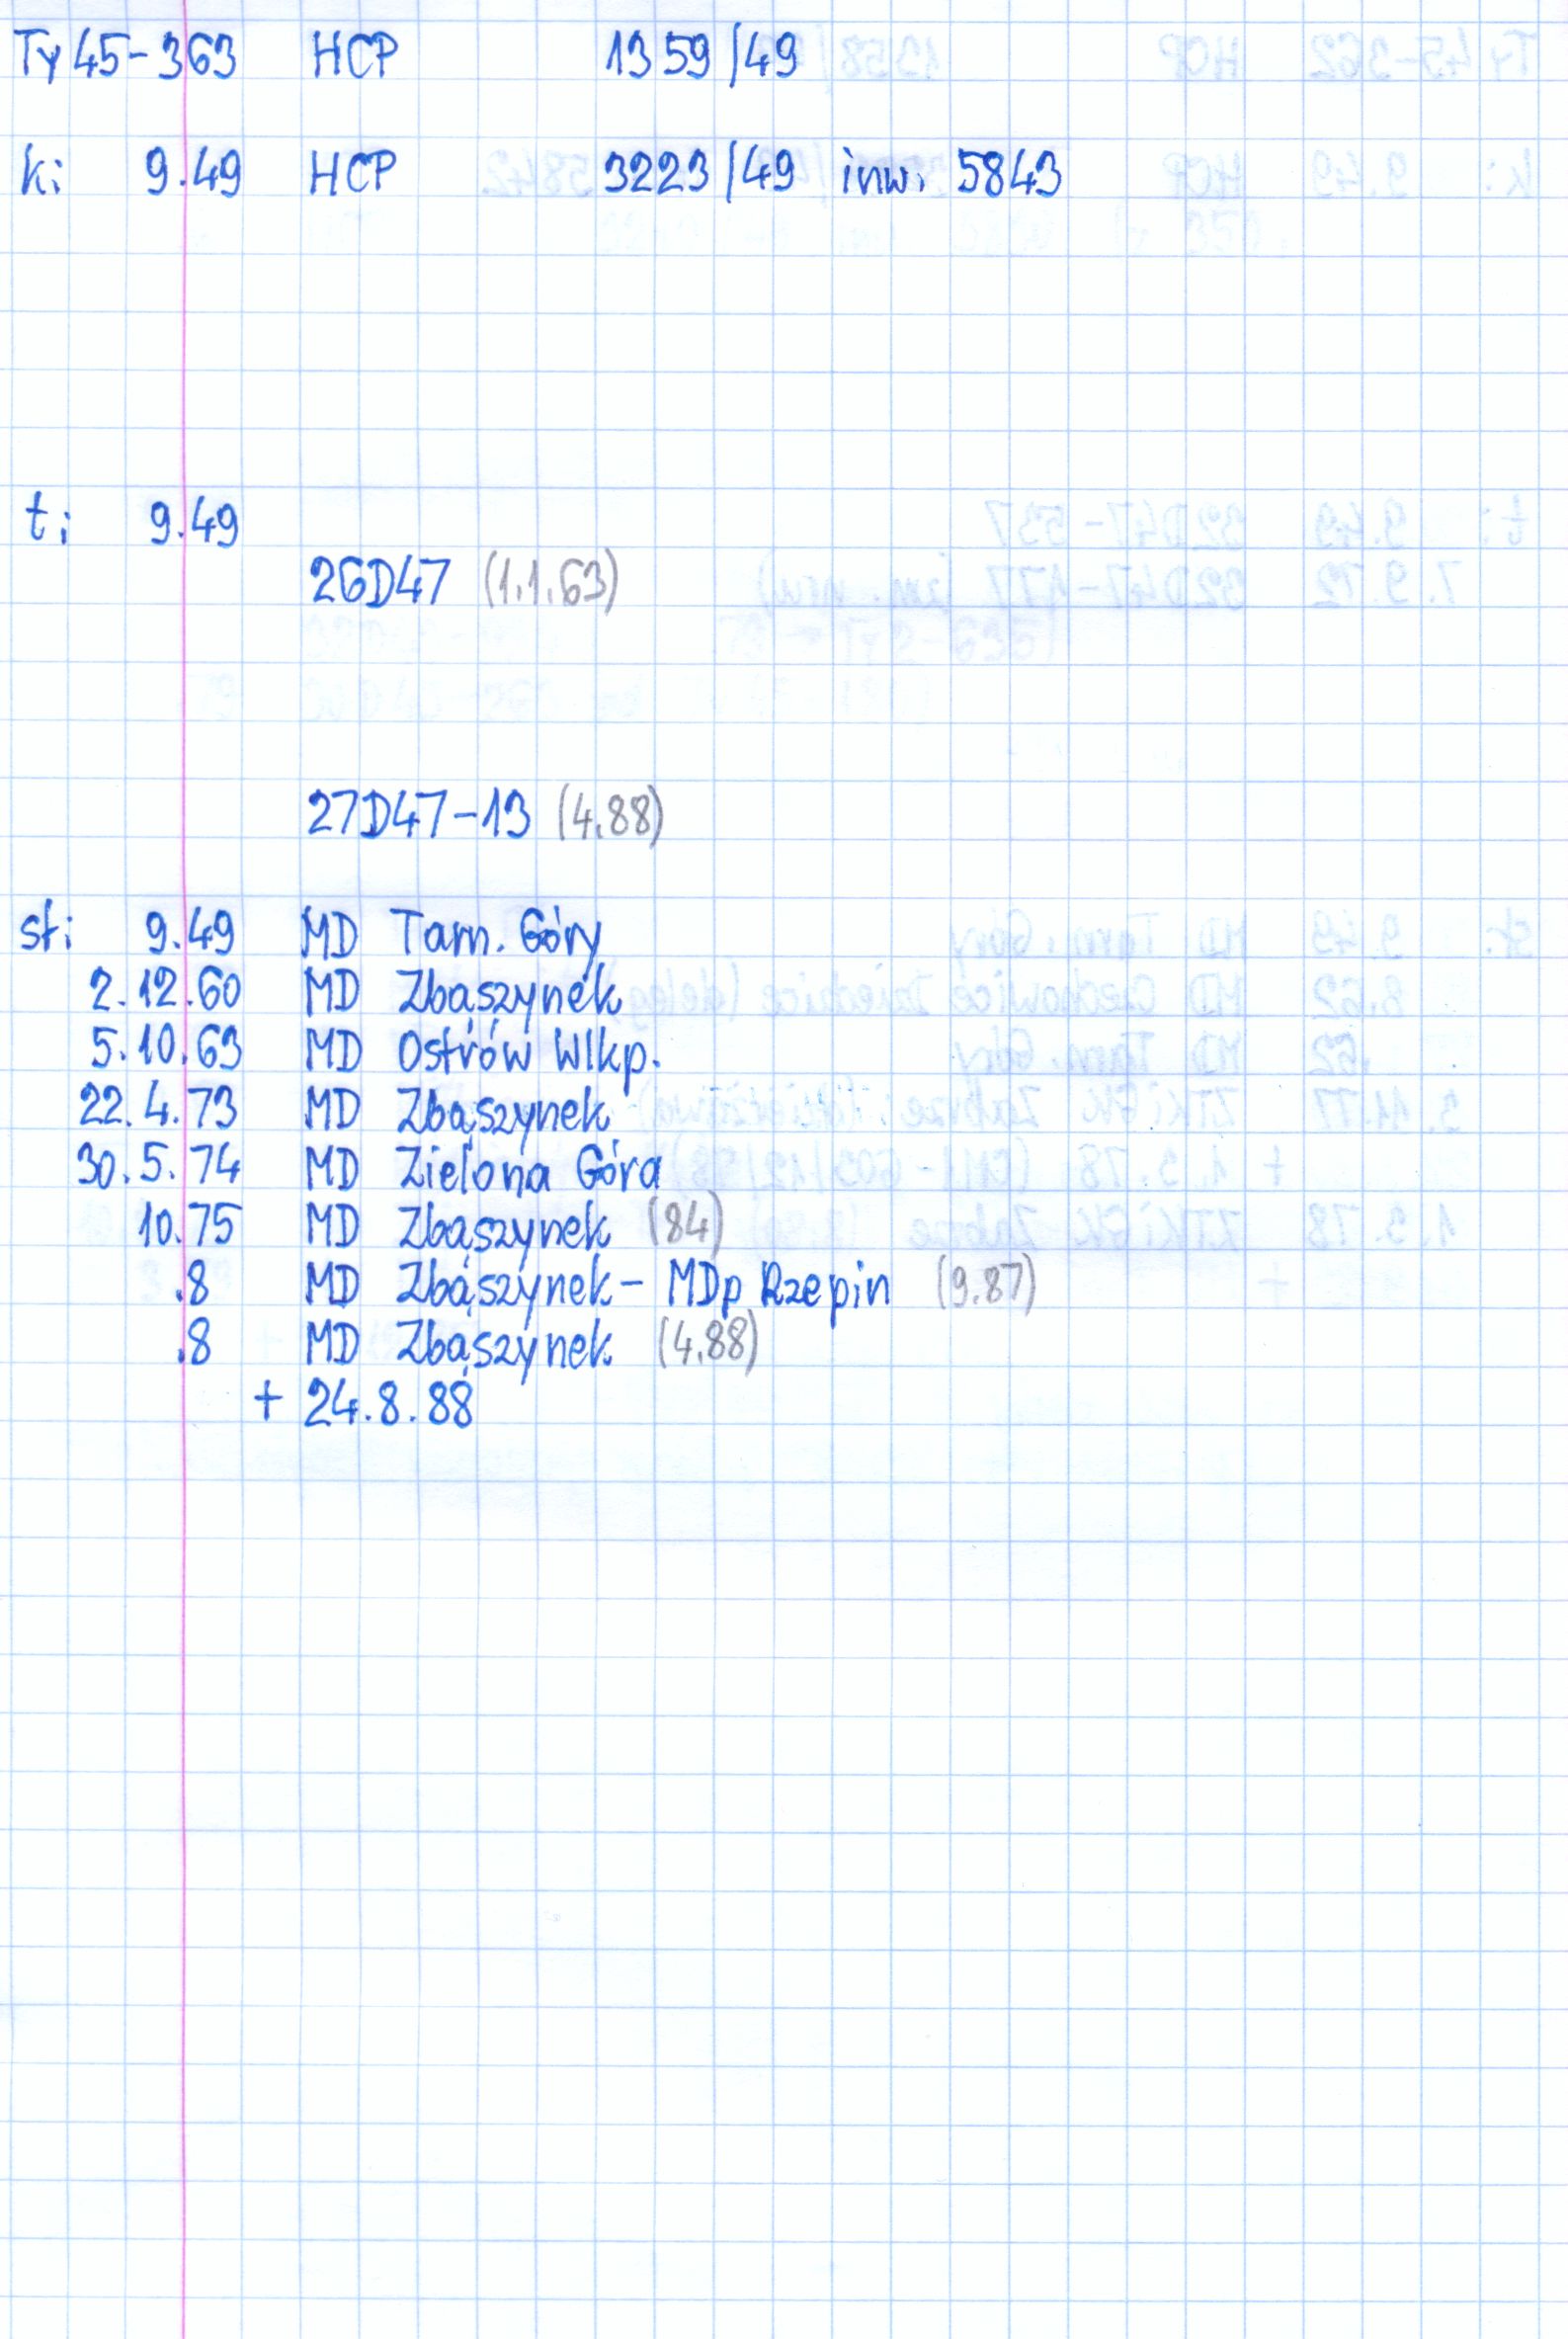 Ty 45-363 HCP 1359/49
k: 9.49 HCP 3223/49 inw. 5843
t: 9.49
26D47 (1.1.63)
27D47-13 (4.88)
st: 9.49 MD Tarn. Góry
2.12.60 MD Zbąszynek
5.10.63 MD Ostrów Wlkp.
22.4.73 MD Zbąszynek
30.5.74 MD Zielona Góra
10.75 MD Zbąszynek (84)
.8 MD Zbąszynek - MDp Rzepin (9.87)
.8 MD Zbąszynek (4.88)
+ 24.8.88